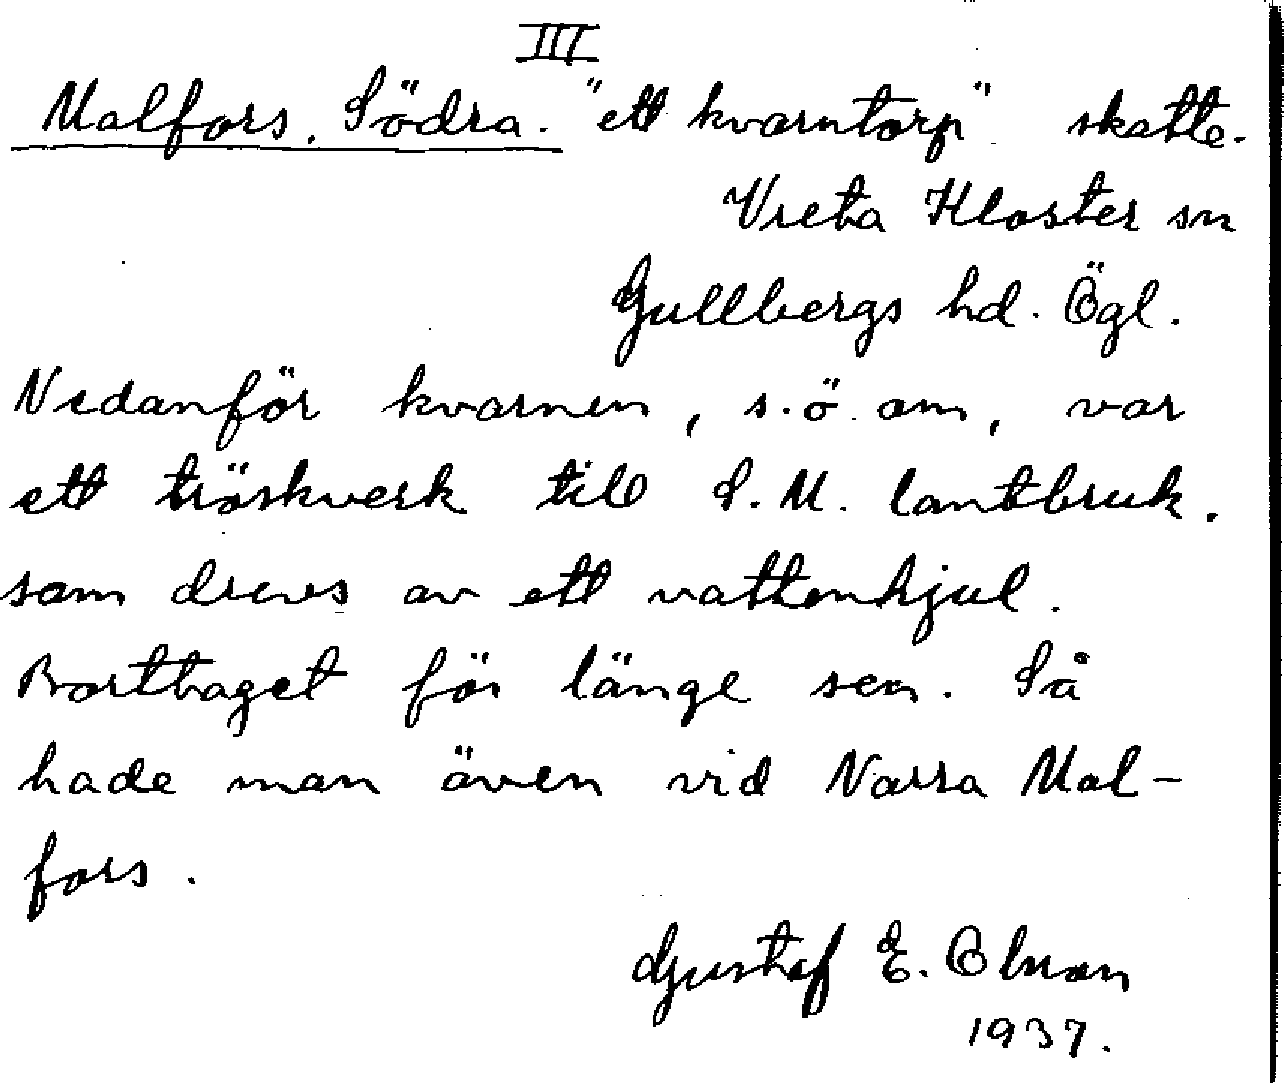 III
Malfors. Södra. "ett kvarntorp" skatte.
Vreta Kloster sn
Gullbergs hd. Ögl.
Nedanför kvarnen, s.ö. om, var
ett tröskverk till S. M. lantbruk.
som drevs av ett vattenhjul.
Borttaget för länge sen. Så
hade man även vid Norra Mal-
fors.
Gustaf E. Olsson
1937.